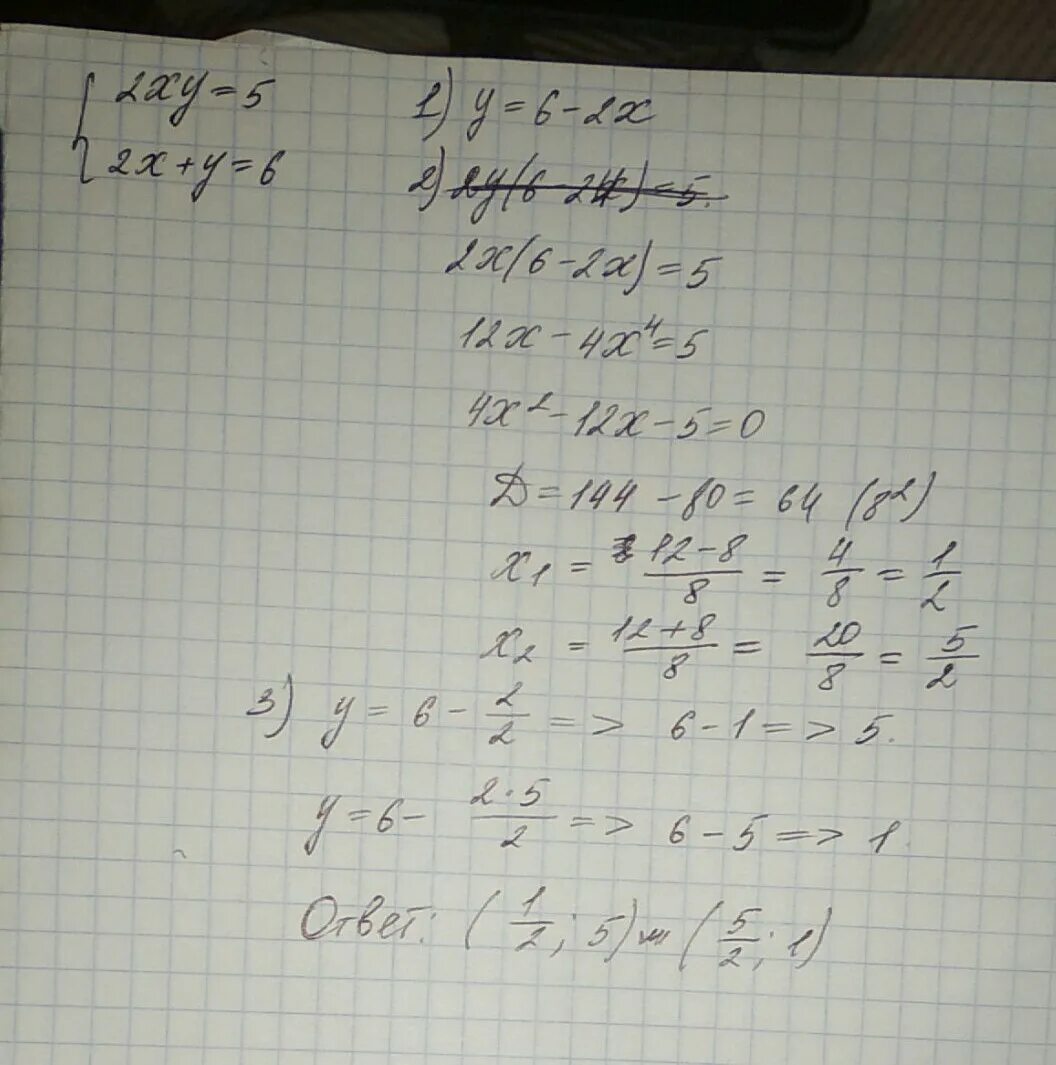 { 2xy = 5
2x + y = 6
1) y = 6 - 2x
2) 2y(6 - 2y) = 5.
2x(6 - 2x) = 5
12x - 4x⁴ = 5
4x² - 12x - 5 = 0
D = 144 - 80 = 64 (8²)
x₁ = (12 - 8)/8 = 4/8 = 1/2
x₂ = (12 + 8)/8 = 20/8 = 5/2
3) y = 6 - 2/2 => 6 - 1 => 5.
y = 6 - (2·5)/2 => 6 - 5 => 1
Ответ: (1/2; 5) и (5/2; 1)